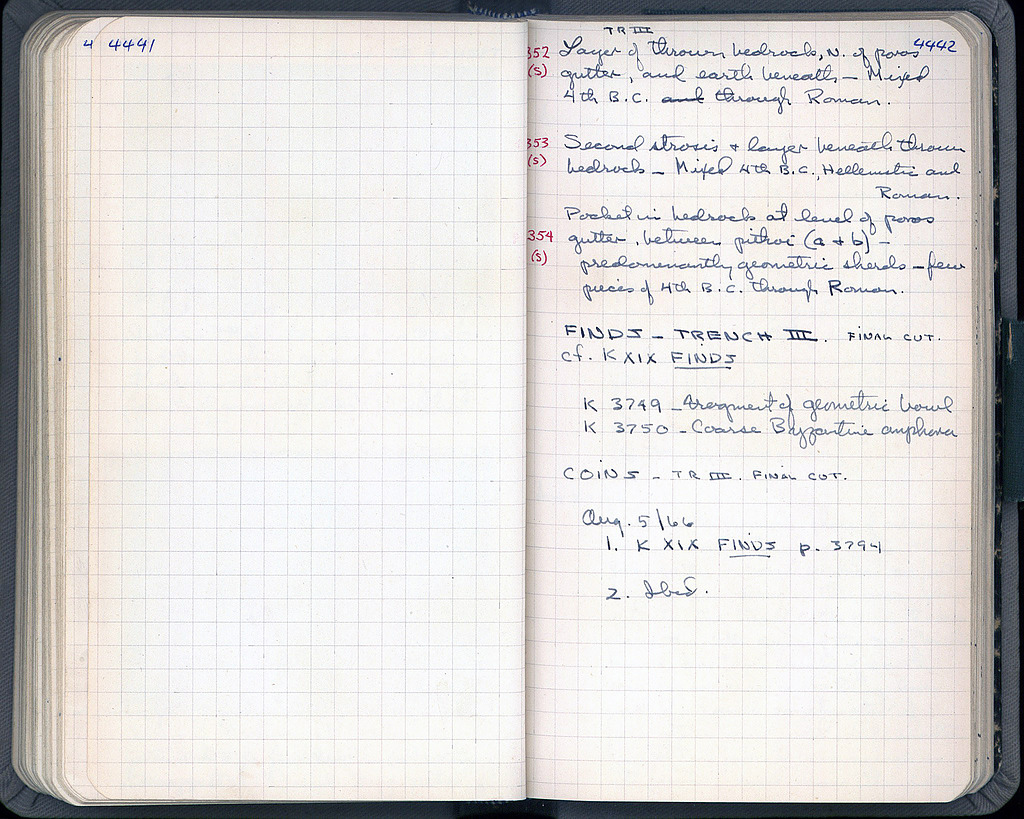 4 4441
TR III
4442
352 Layer of thrown bedrock, N. of poros
(S) gutter, and earth beneath — Mixed
4th B.C. and through Roman.
353 Second strosis + layer beneath thrown
(S) bedrock — Mixed 4th B.C., Hellenistic and
Roman.
Pocket in bedrock at level of poros
354 gutter, between pithoi (a + b) —
(S) predomenantly geometric sherds — few
pieces of 4th B.C. through Roman.
FINDS — TRENCH III. FINAL CUT.
cf. K XIX FINDS
K 3749 — fragment of geometric bowl
K 3750 — Coarse Byzantine amphora
COINS — TR III. FINAL CUT.
Aug. 5/66
1. K XIX FINDS p. 3794
2. Ibid.